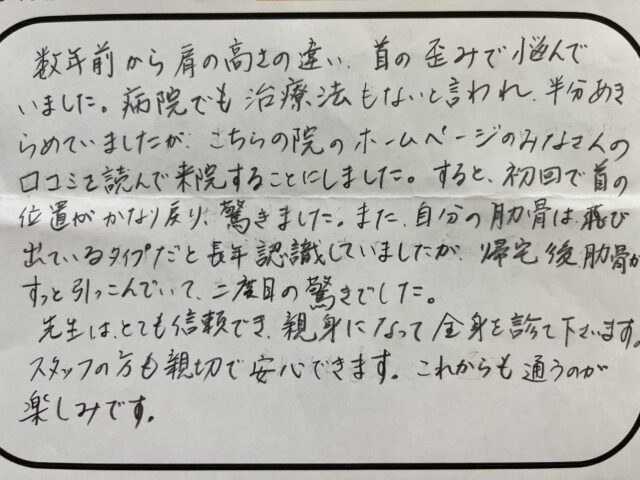 数年前から肩の高さの違い、首の歪みで悩んで
いました。病院でも治療法もないと言われ、半分あき
らめていましたが、こちらの院のホームページのみなさんの
口コミを読んで来院することにしました。すると、初回で首の
位置がかなり戻り、驚きました。また、自分の肋骨は、飛び
出ているタイプだと長年認識していましたが、帰宅後、肋骨が
すっと引っこんでいて、二度目の驚きでした。
先生は、とても信頼でき、親身になって全身を診て下さいます。
スタッフの方も親切で安心できます。これからも通うのが
楽しみです。